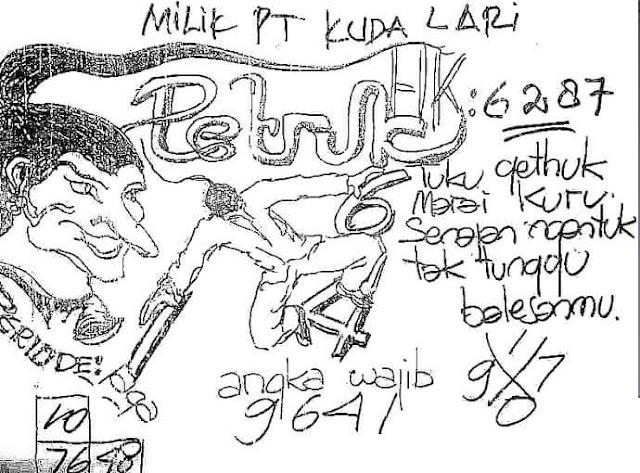 MILIK PT KUDA LARI
Petruk
HK: 6287
Tuku gethuk
Marai kuru.
Senajan ngantuk
tak tunggu
balesanmu.
6
4
angka wajib
9641
9 7
0
10
76 48